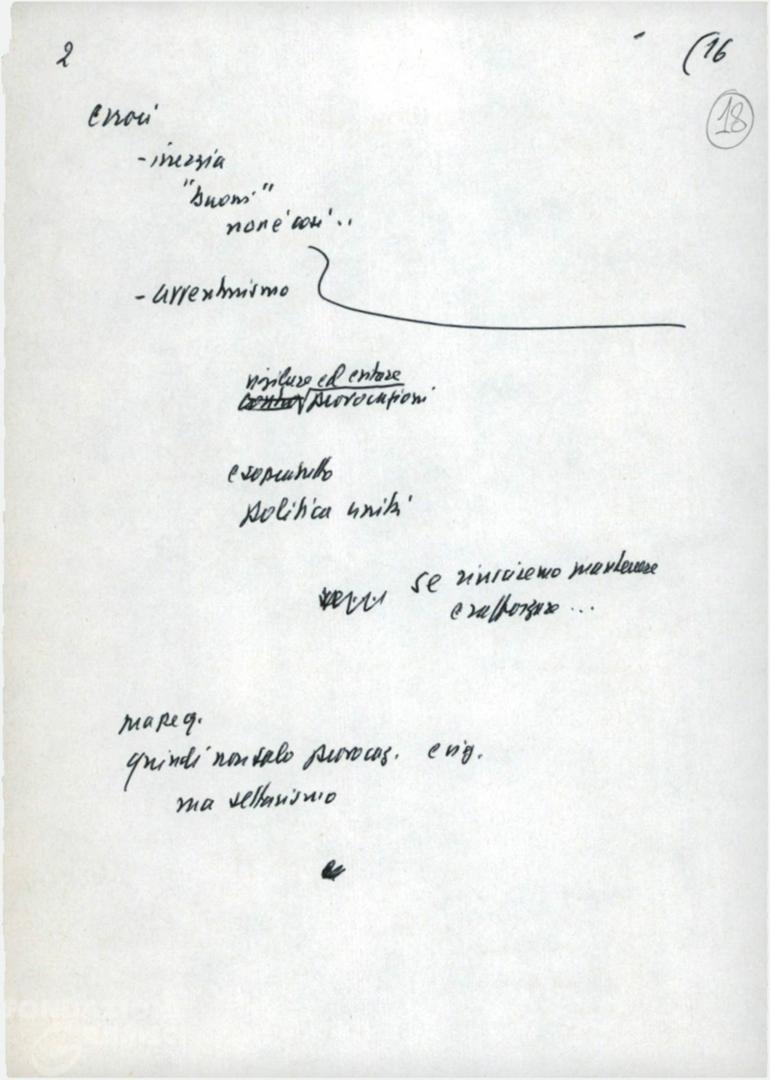 2
(16
18
errori
- inerzia
"buoni"
non è così..
- avventurismo
vigilare ed evitare
contro provocazioni
e soprattutto
politica unità
se riusciremo mantenere
e rafforzare ...
ma se q.
quindi non solo provocaz. e vig.
ma settarismo
e